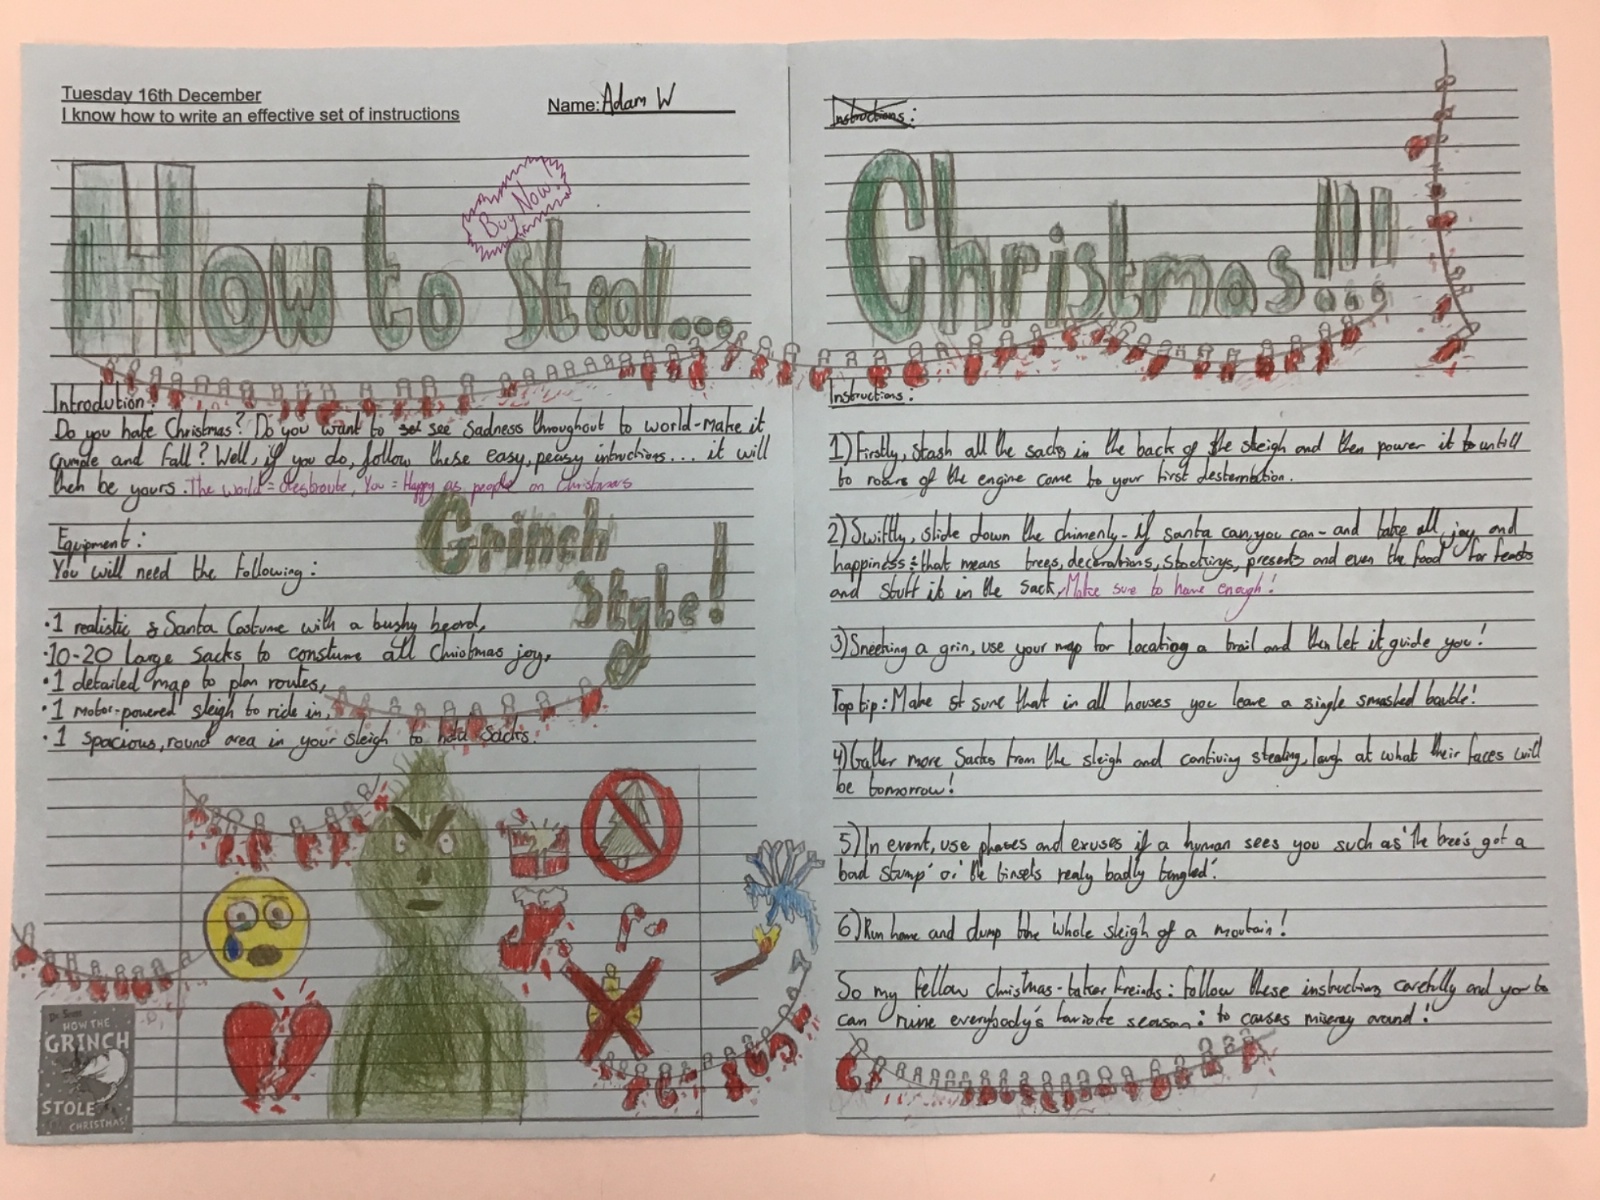 Tuesday 16th December
I know how to write an effective set of instructions
Name: Adam W
How to Steal...
Buy Now!
Introdution:
Do you hate Christmas? Do you want to see sadness throughout to world-make it
crumple and fall? Well, if you do, follow these easy, peasy intructions... it will
then be yours. The world = desbroute, You = Happy as people on Christmars
Grinch
Style!
Equipment:
You will need the following:
•1 realistic Santa Costume with a bushy beard,
•10-20 large sacks to constume all Christmas joy,
•1 detailed map to plan routes,
•1 motor-powered sleigh to ride in,
•1 spacious, round area in your sleigh to hold sacks.
Dr. Seuss
HOW THE
GRINCH
STOLE
CHRISTMAS!
Instructions:
Christmas!!!
Instructions:
1) Firstly, stash all the sacks in the back of the sleigh and then power it untill
to roars of the engine come to your first desternbation.
2) Swiftly, slide down the chimenly - if santa can, you can - and take all joy and
happiness: that means trees, decorations, stockings, presents and even the food for feasts
and stuff it in the sack, Make sure to have enough!
3) Sneeking a grin, use your map for locating a trail and then let it guide you!
Top tip: Make sure that in all houses you leave a single smashed bauble!
4) Gather more sacks from the sleigh and contiving stealing, laugh at what their faces will
be tomorrow!
5) In event, use phases and exuses if a human sees you such as 'the tree's got a
bad stump' or 'the tinsels realy badly tangled'.
6) Run home and dump the whole sleigh of a moutain!
So my fellow christmas-taker freinds: follow these instructions carefully and you
can ruine everybody's favioite season: to causes miseray around!